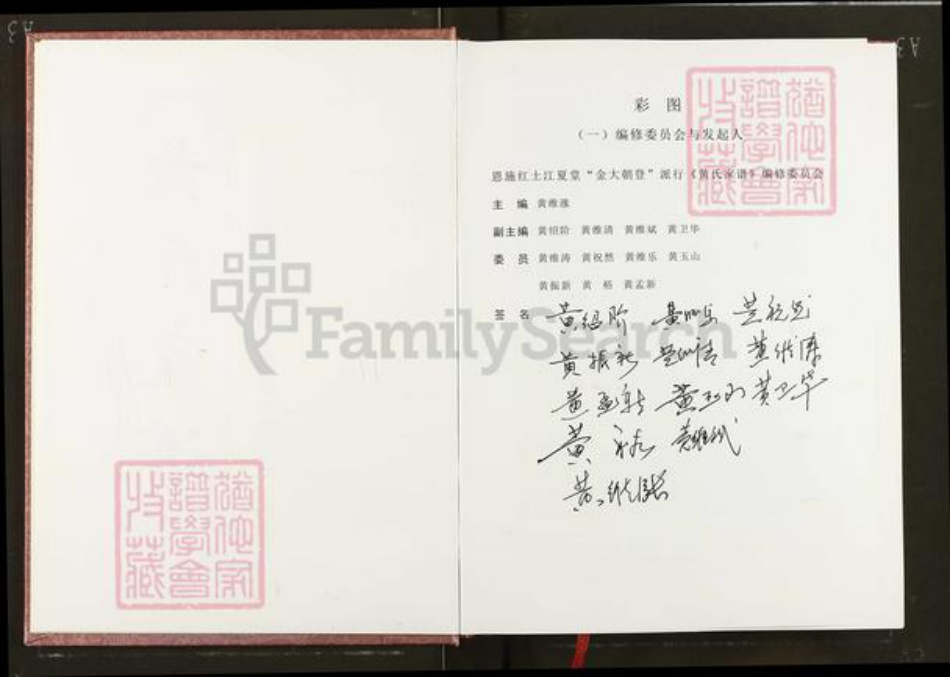 彩 图
（一）编修委员会与发起人
恩施红土江夏堂“金大朝登”派行《黄氏家谱》编修委员会
主 编 黄维涨
副主编 黄绍阶 黄维清 黄维斌 黄卫华
委 员 黄维涛 黄祝然 黄维乐 黄玉山
黄振新 黄 裕 黄孟新
签 名 黄绍阶 黄维乐 黄祝然
黄振新 黄维清 黄维涛
黄孟新 黄玉山 黄卫华
黄 裕 黄维斌
FamilySearch
猶他家譜學會收藏
猶他家譜學會收藏